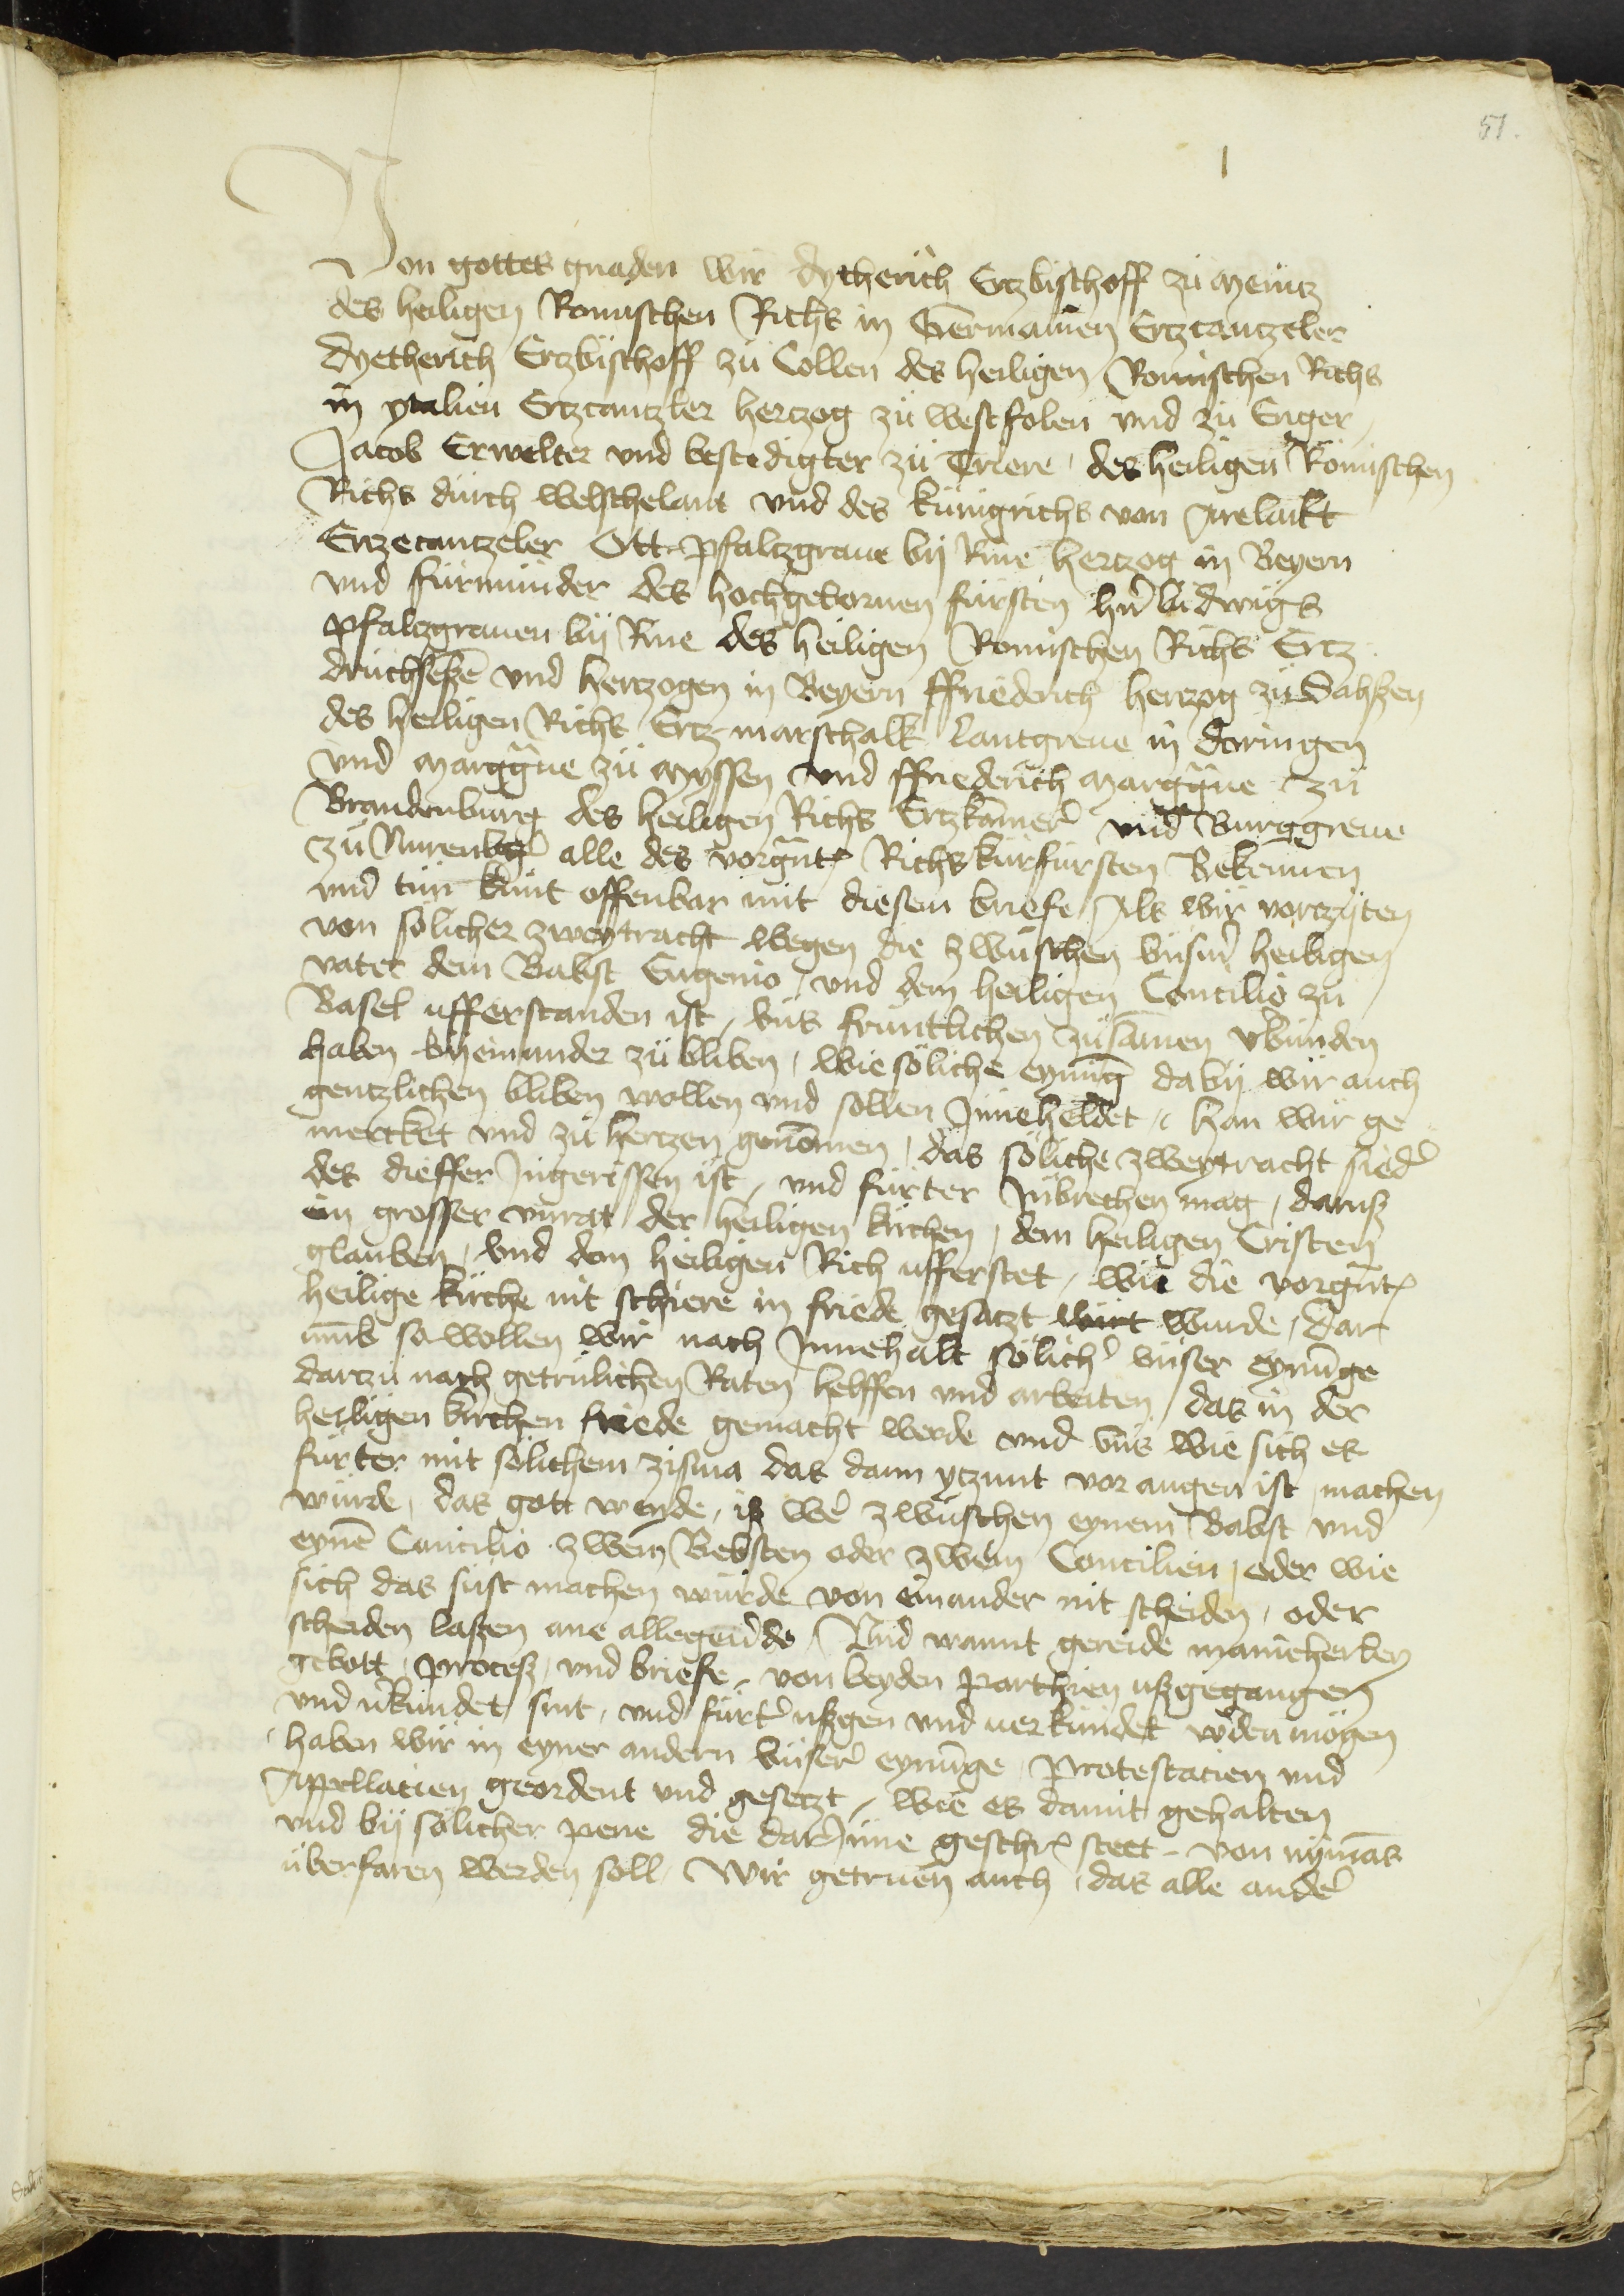 51.
I
Von gottes gnaden wir dytherich Ertzbischoff zu Mentz
des heiligen Romischen Richs in Germanien Ertzcantzeler
dyetherich Ertzbischoff zu Collen des heiligen Romischen Richs
in ytalien Ertzcantzler hertzog zu westfolen vnd zu Enger,
Jacob Erwelter vnd bestedigter zu Triere, des heiligen Römischen
Richs durch welschelant vnd des kunigrichs von Arelaikt
Ertzecantzeler Ott pfaltzgraue bij Rine hertzog in Beyern
vnd fürmünder des hochgebornen fürsten hn̄ ludwigs
pfaltzgrauen bij Rine des heiligen Romischen Richs Ertz
druchseßē vnd hertzogen in Beyern ffriederich hertzog zu Sahßen
des heiligen Richs Ertz marschalk lantgreue in doringen
vnd marggue zu myssen vnd ffriederich marggue zu
Brandenburg des heiligen Richs Ertzkamer̄ vnd Burggreue
zu Nurenbḡ alle des vorgnt̄ Richs kurfursten Bekennen
vnd tun kunt offenbar mit diesem briefe, Als wir vorzyten
von sölicher zweytracht wegen die zwuschen vnsm̄ heiligen
vater dem Babst Eugenio, vnd dem heiligen Concilio zu
Basel ufferstanden ist, vns fruntlichen zusāmen v̄bunden
haben bij einander zu bliben, wie söliche eynuḡ da bij wir auch
gentzlichen bliben wollen vnd sollen Inneheldet, han wir ge
mercket vnd zu hertzen genōmen, das söliche zweytracht sied̄
des dieffer Ingerissen ist, vnd fürter Inbrechen mag, daruß
ein grosser vnrat der heiligen kirchen, dem heiligen Cristen
glauben, vnd dem heiligen Rich ufferstet, wie die vorgnt̄
heilige kirche nit schiere in friede gesatzt wirt wurde, dar
vmb so wollen wir nach Innehalt sölich̄ vnser eynūge
dartzu nach getrulichen Raten helffen vnd arbeiten, das in der
heiligen kirchen friede gemacht werde vnd vns wie sich es
fürter mit sölichem zisma das dann ytzunt vor augen ist machen
würde, das gott wende, iß we zwuschen eynem Babst vnd
eynē Concilio zwein Bebsten oder zwein Concilien, oder wie
sich das sust machen würde von einander nit scheiden, oder
scheiden laßen ane allegeūde, Vnd wannt gereide manicherley
gebott, proceß, vnd briefe, von beyden parthien ußgegangen
vnd v̄kundet sint, vnd fürt̄ ußgen vnd verkundet wden mögen
haben wir in eyner andern vnser̄ eynūge, Protestacien vnd
Appellacien geordent vnd gesetzt, wie es damit gehalten
vnd bij sölicher pene die dar Inne geschr̄ steet, von nymās
überfaren werden soll, Wir getruen auch, das alle ande